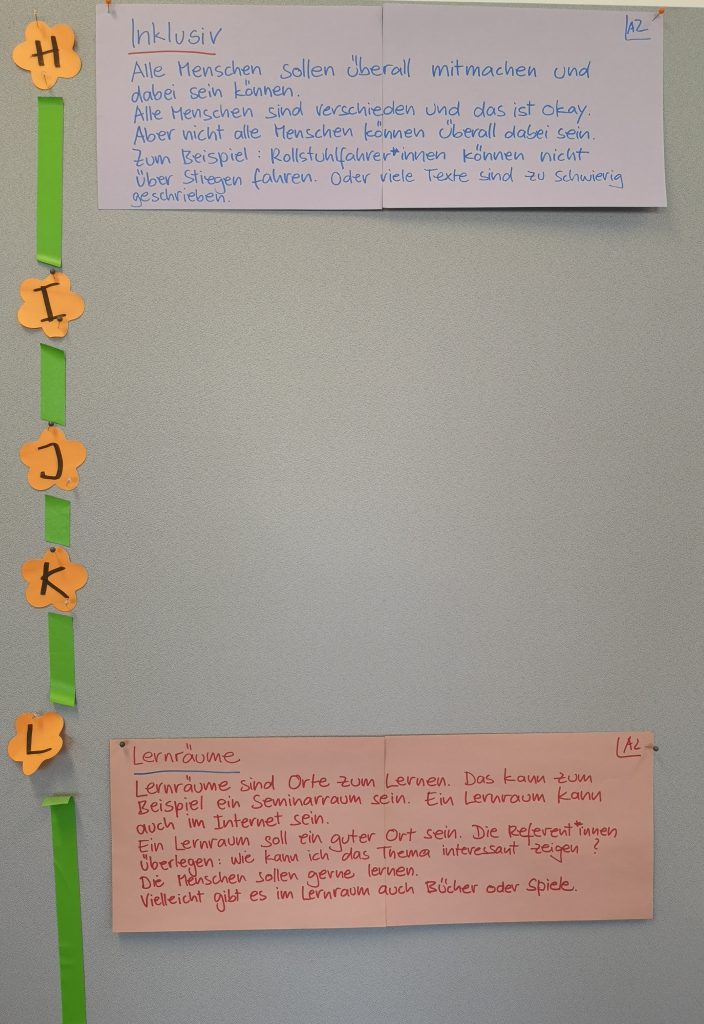 H
Inklusiv
A2
Alle Menschen sollen überall mitmachen und
dabei sein können.
Alle Menschen sind verschieden und das ist okay.
Aber nicht alle Menschen können überall dabei sein.
Zum Beispiel: Rollstuhlfahrer*innen können nicht
über Stiegen fahren. Oder viele Texte sind zu schwierig
geschrieben.
I
J
K
L
Lernräume
A2
Lernräume sind Orte zum Lernen. Das kann zum
Beispiel ein Seminarraum sein. Ein Lernraum kann
auch im Internet sein.
Ein Lernraum soll ein guter Ort sein. Die Referent*innen
überlegen: wie kann ich das Thema interessant zeigen?
Die Menschen sollen gerne lernen.
Vielleicht gibt es im Lernraum auch Bücher oder Spiele.